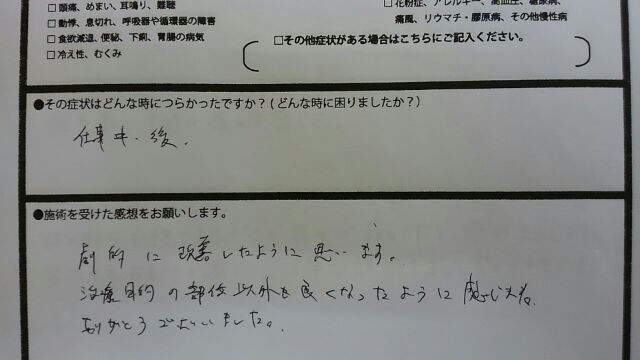 □頭痛、めまい、耳鳴り、難聴
□動悸、息切れ、呼吸器や循環器の障害
□食欲減退、便秘、下痢、胃腸の病気
□冷え性、むくみ
□花粉症、アレルギー、高血圧、糖尿病、
痛風、リウマチ・膠原病、その他慢性病
□その他症状がある場合はこちらにご記入ください。
●その症状はどんな時につらかったですか？(どんな時に困りましたか？)
仕事中・後。
●施術を受けた感想をお願いします。
劇的に改善したように思います。
治療目的の部位以外も良くなったように感じます。
ありがとうございました。